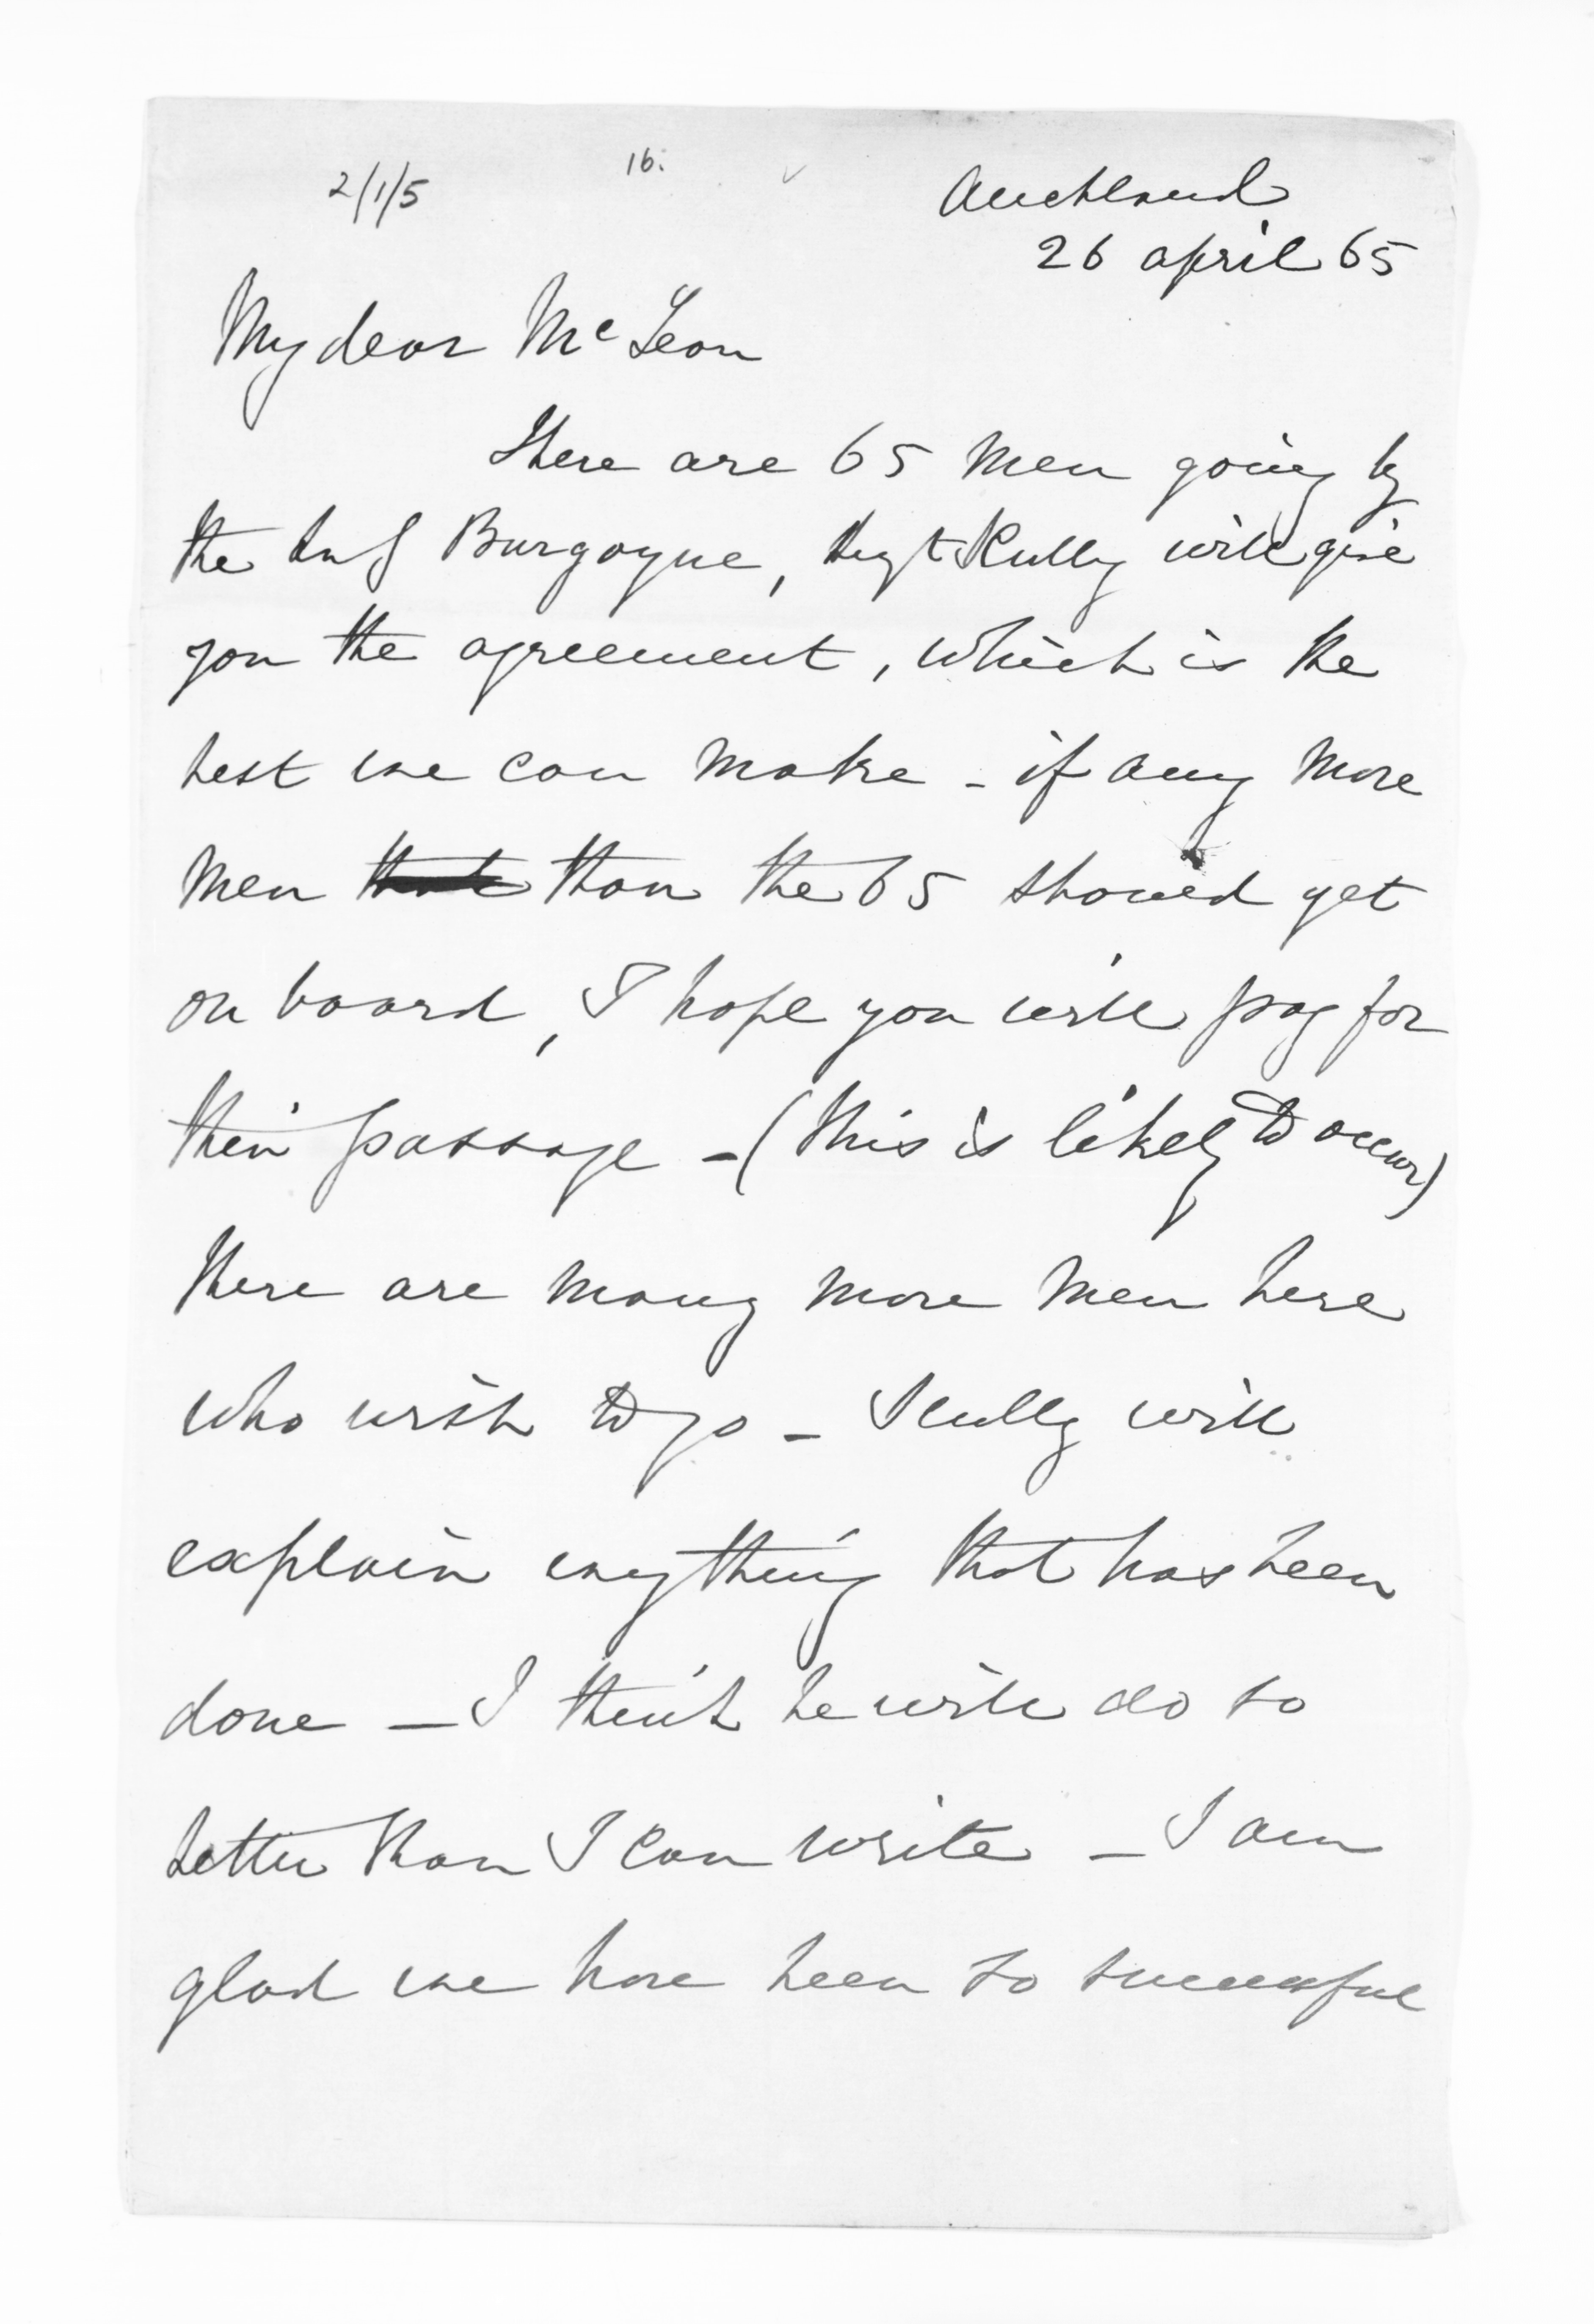 2/1/5
16.
Auckland
26 april 65
My dear McLean
There are 65 men going by
the Burgoyne, Sergt Scully will give
you the agreement, which is the
best we can make - if any more
men than the 65 should get
on board, I hope you will pay for
their passage - (this is likely to occur)
there are many more men here
who wish to go - Scully will
explain anything that has been
done - I think he will do so
better than I can write - I am
glad we have been so successful